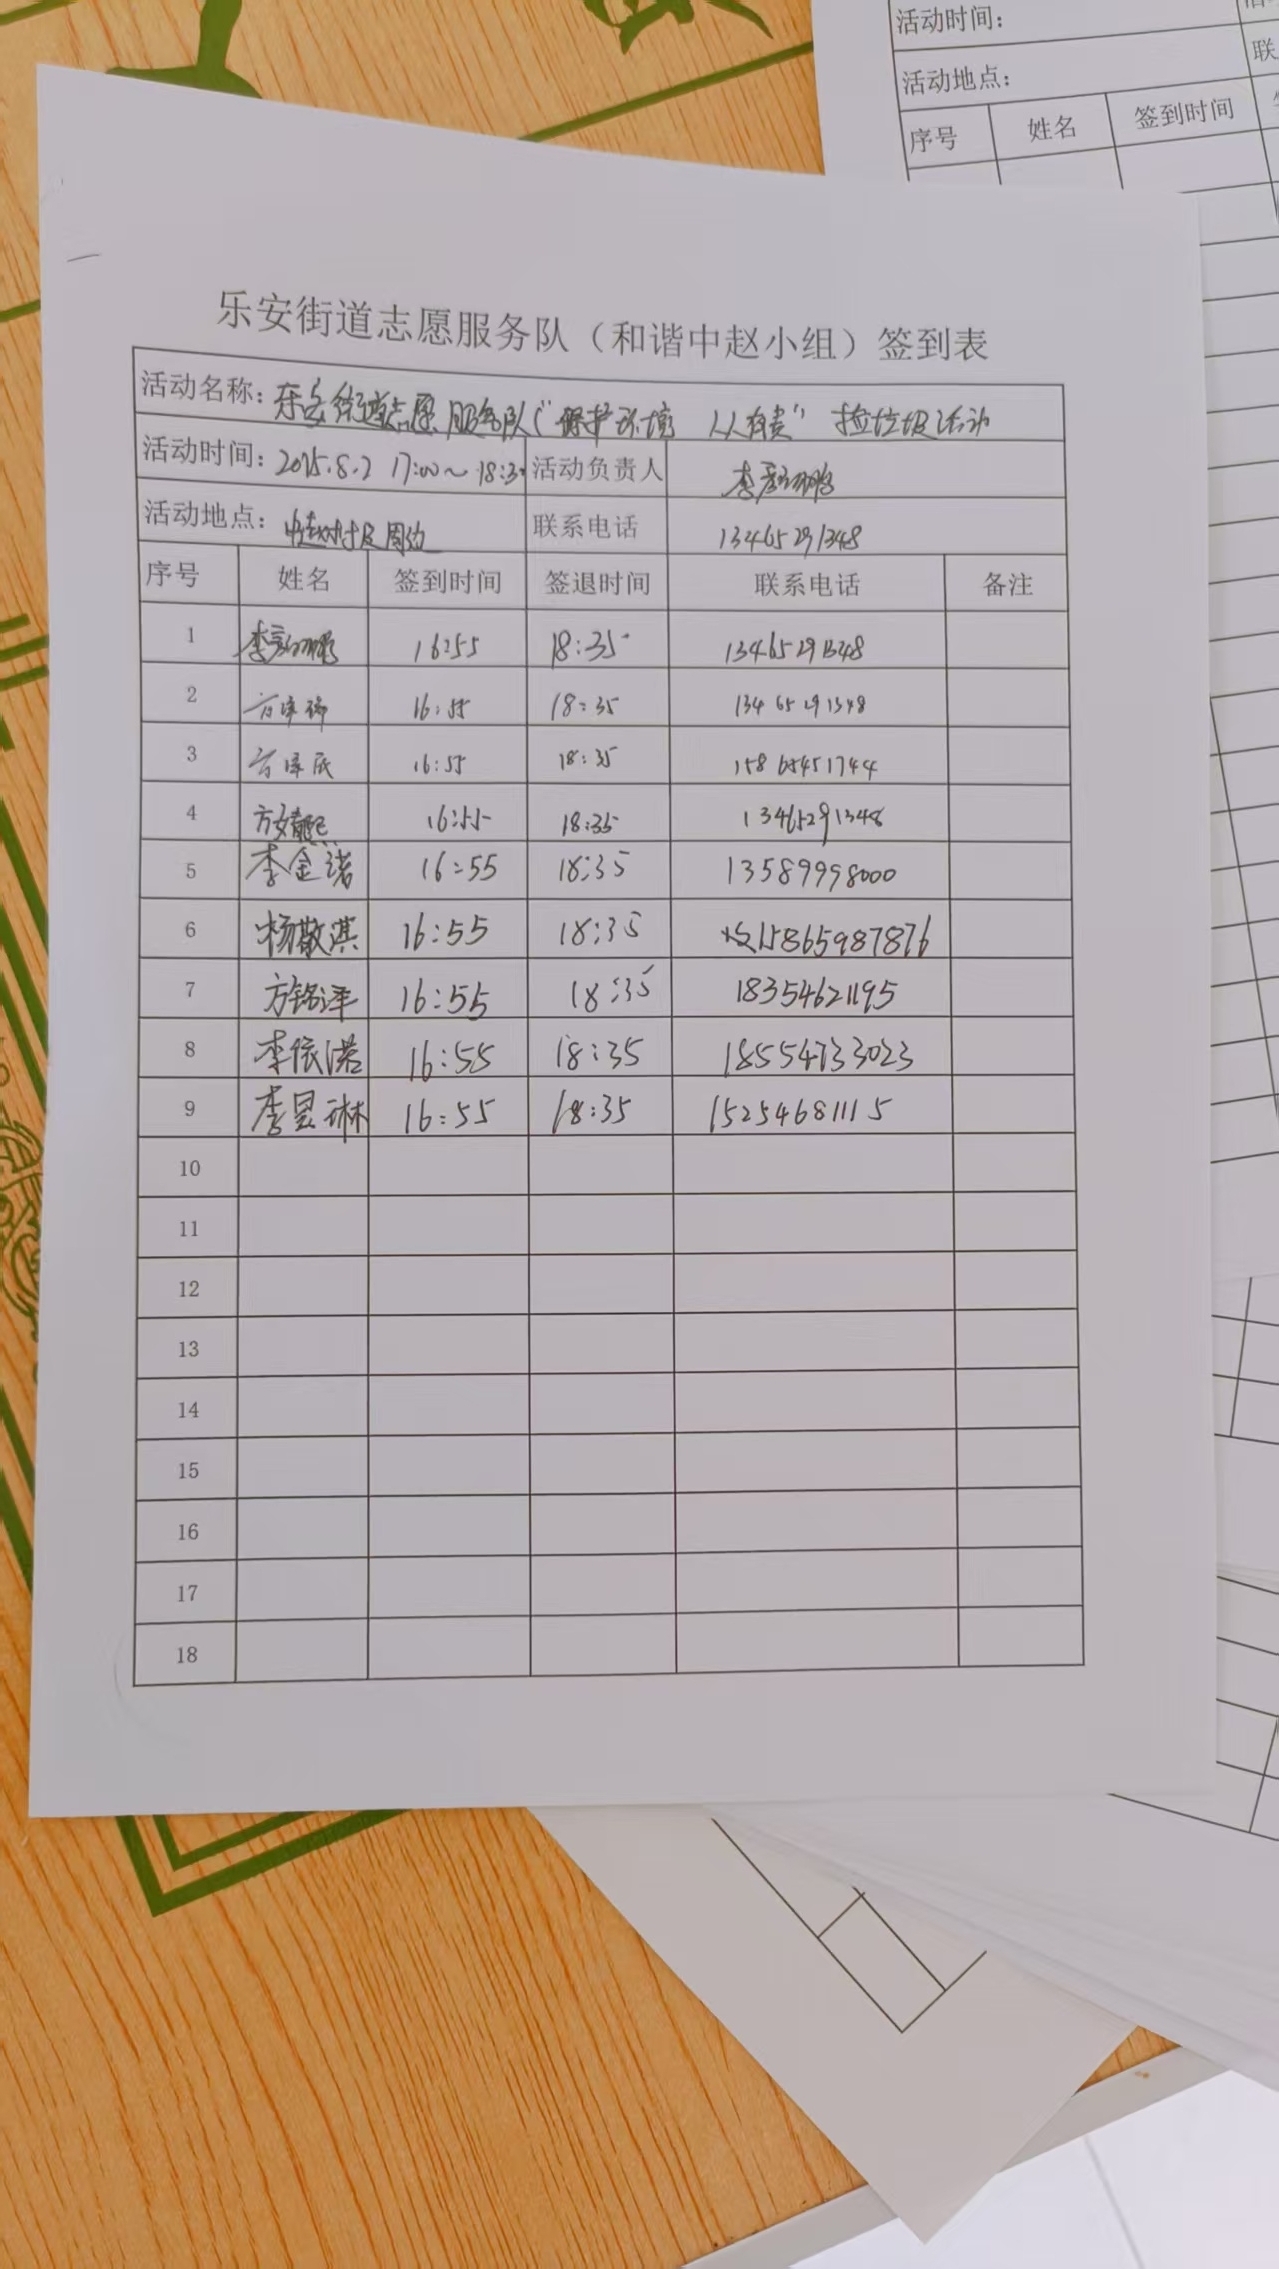 活动时间:
活动地点:
联
序号 姓名 签到时间
乐安街道志愿服务队（和谐中赵小组）签到表
活动名称: 乐安街道志愿服务队("保护环境 人人有责" 捡垃圾活动
活动时间: 2025.8.2 17:00~18:30 活动负责人 李
活动地点: 中赵村及周边 联系电话 13465291348
序号 姓名 签到时间 签退时间 联系电话 备注
1 李 16:55 18:35 13465291348
2 方泽 16:55 18:35 13465291348
3 方泽 16:55 18:35 15865451744
4 方婧熙 16:55 18:35 13465291348
5 李金诺 16:55 18:35 13589998000
6 杨敬淇 16:55 18:35 15865987876
7 方铭泽 16:55 18:35 18354621195
8 李依诺 16:55 18:35 18554733023
9 李昱琳 16:55 18:35 15254681115
10
11
12
13
14
15
16
17
18